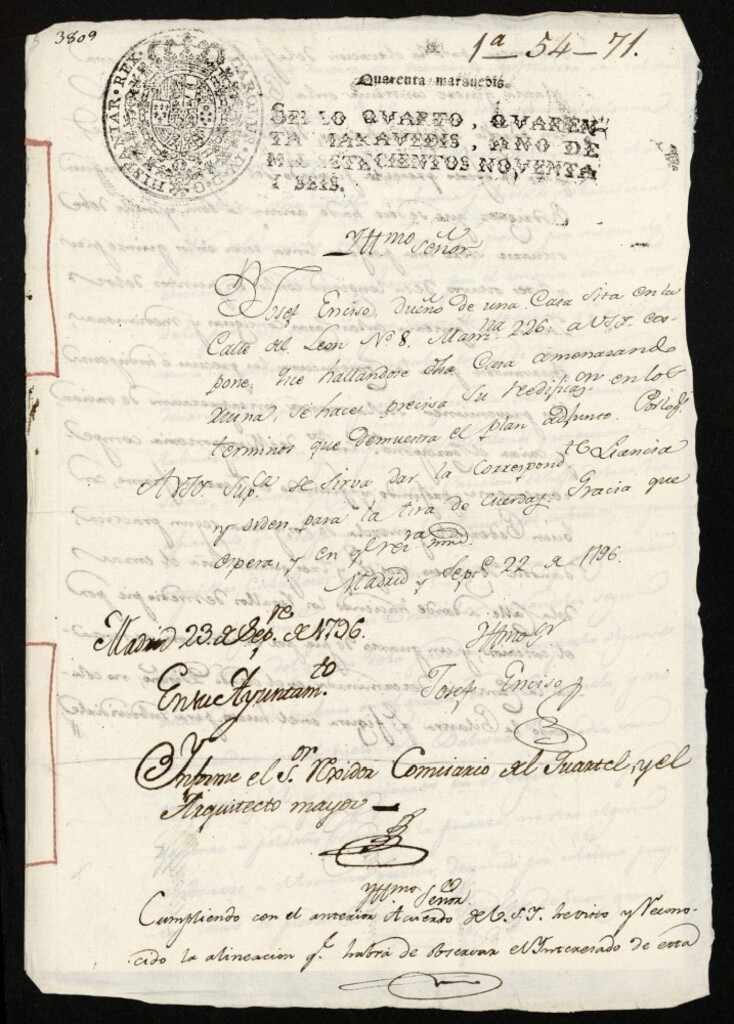 3809
1ª 54-71.
CAROLUS IV D G HISPANIAR. REX
Quarenta maravedis.
SELLO QVARTO, QVAREN-
TA MARAVEDIS, AÑO DE
MIL SETECIENTOS NOVENTA
Y SEIS.
Yttmo Señor
Josef Enciso, dueño de una Casa Sita en la
Calle del Leon Nº 8. Manna 226: a VSY. ex-
pone, que hallandose dha Casa amenasando
Ruina, se hace precisa su redificaon en los
terminos que demuestra el plan adjunto. Por lo q.
A VSY. Supca se sirva dar la Correspondte Licencia
y orden para la tira de cuerdas, Gracia que
espera, y en q. recivira md.
Madrid y Sepre 22 de 1796.
Yttmo Sr
Josef Enciso
Madrid 23. de Sepre de 1796.
En su Ayuntamto
Ynforme el Sor Rexidor Comisario del Quartel, y el
Arquitecto mayor
Yttmo Señor
Cumpliendo con el anterior Acuerdo de V.S.Y. he visto y Recono-
cido la alineacion q. habrá de observar el Ynteresado de esta